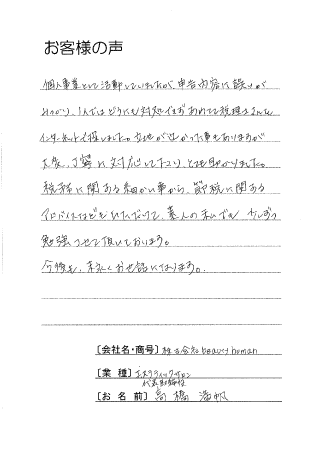 お客様の声
個人事業として活動していましたが、申告内容に誤りが
みつかり、1人ではどうにも対処できずあわてて税理士さんを
インターネットで探しました。立地が近かった事もありますが
大変、丁寧に対応して下さり、とても助かりました。
税務に関する細かい事から、節税に関する
アドバイスなどもいただいて、素人の私でも少しずつ
勉強させて頂いております。
今後も、末永くお世話になります。
［会社名・商号］株式会社beauty human
［業 種］エステティックサロン
代表取締役
［お 名 前］高橋